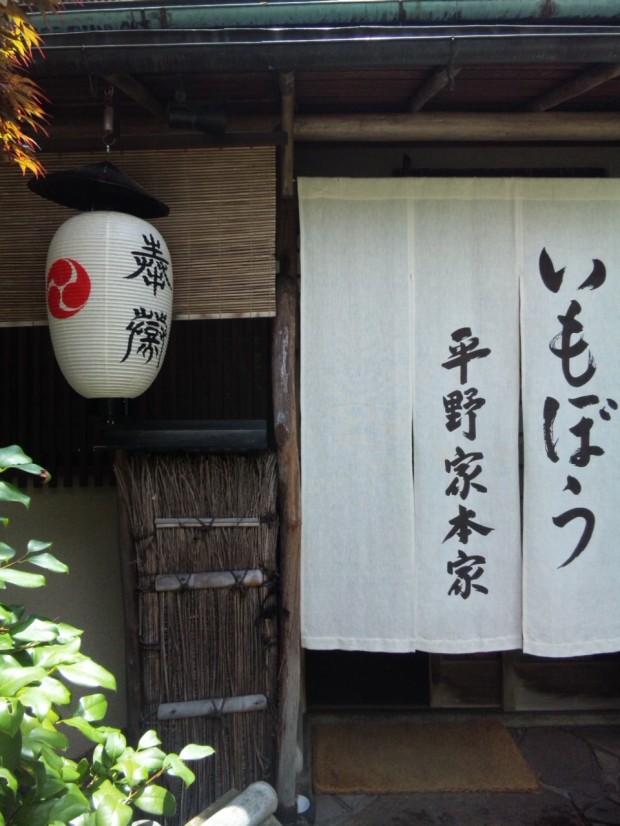 いもぼう
平野家本家
奉